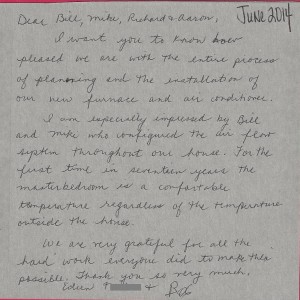 June 2014
Dear Bill, Mike, Richard & Aaron,
I want you to know how
pleased we are with the entire process
of planning and the installation of
our new furnace and air conditioner.
I am especially impressed by Bill
and Mike who configured the air flow
system throughout our house. For the
first time in seventeen years the
master bedroom is a comfortable
temperature regardless of the temperature
outside the house.
We are very grateful for all the
hard work everyone did to make this
possible. Thank you so very much,
&